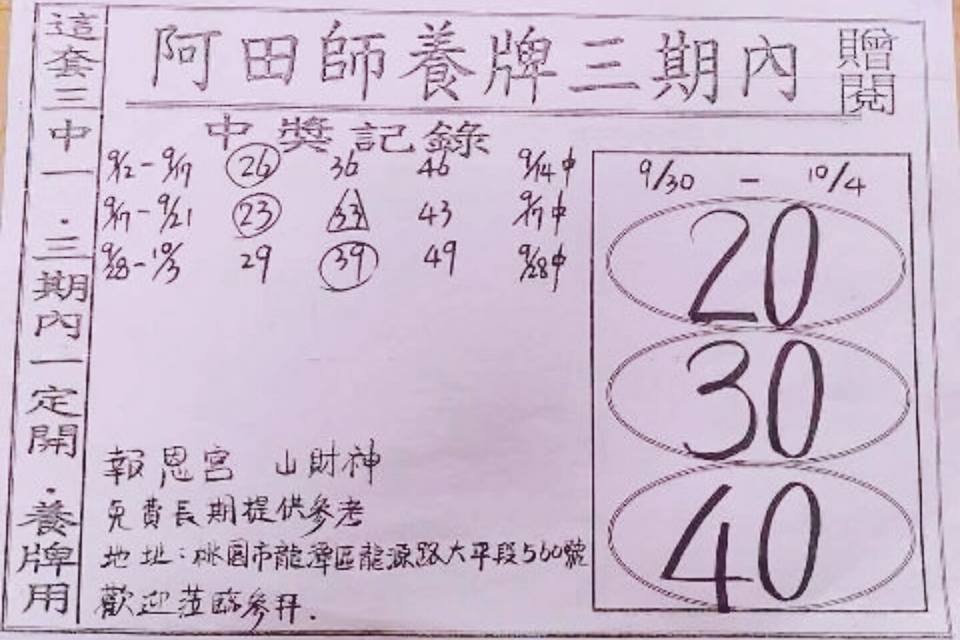 這套三中一．三期內一定開．養牌用
阿田師養牌三期內
贈閱
中獎記錄
9/12-9/17 26 36 46 9/14中
9/17-9/21 23 33 43 9/17中
9/28-10/3 29 39 49 9/28中
9/30 - 10/4
20
30
40
報恩宮 山財神
免費長期提供參考
地址:桃園市龍潭區龍源路大平段560號
歡迎蒞臨參拜.